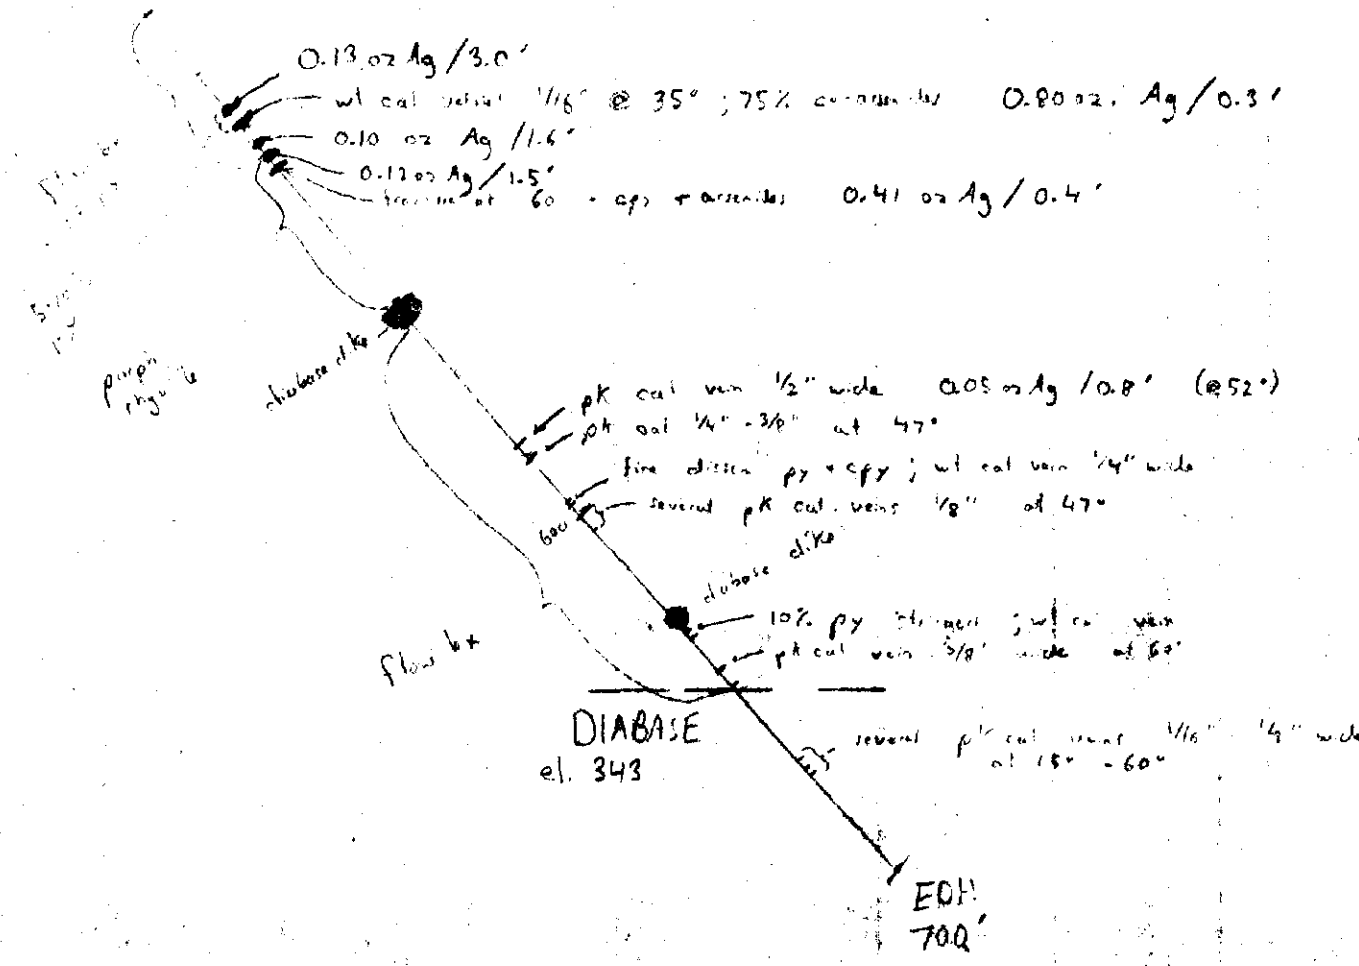 0.13 oz Ag / 3.0'
wt cal 1/16" @ 35° ; 75% 0.80 oz. Ag / 0.3'
0.10 oz Ag / 1.6'
0.12 oz Ag / 1.5'
at 60 - cpy + arsenides 0.41 oz Ag / 0.4'
diabase dike
pk cal vein 1/2" wide 0.05 oz Ag / 0.8' (@ 52°)
pk cal 1/4" - 3/8" at 47°
fine dissem py + cpy ; wt cal vein 1/4" wide
several pk cal. veins 1/8" at 47°
600
diabase dike
10% py stringers ; wt cal vein
pk cal vein 3/8" wide at 60°
flow bx
DIABASE
el. 343
several pk cal veins 1/16" - 1/4" wide
at 15° - 60°
EOH
700'